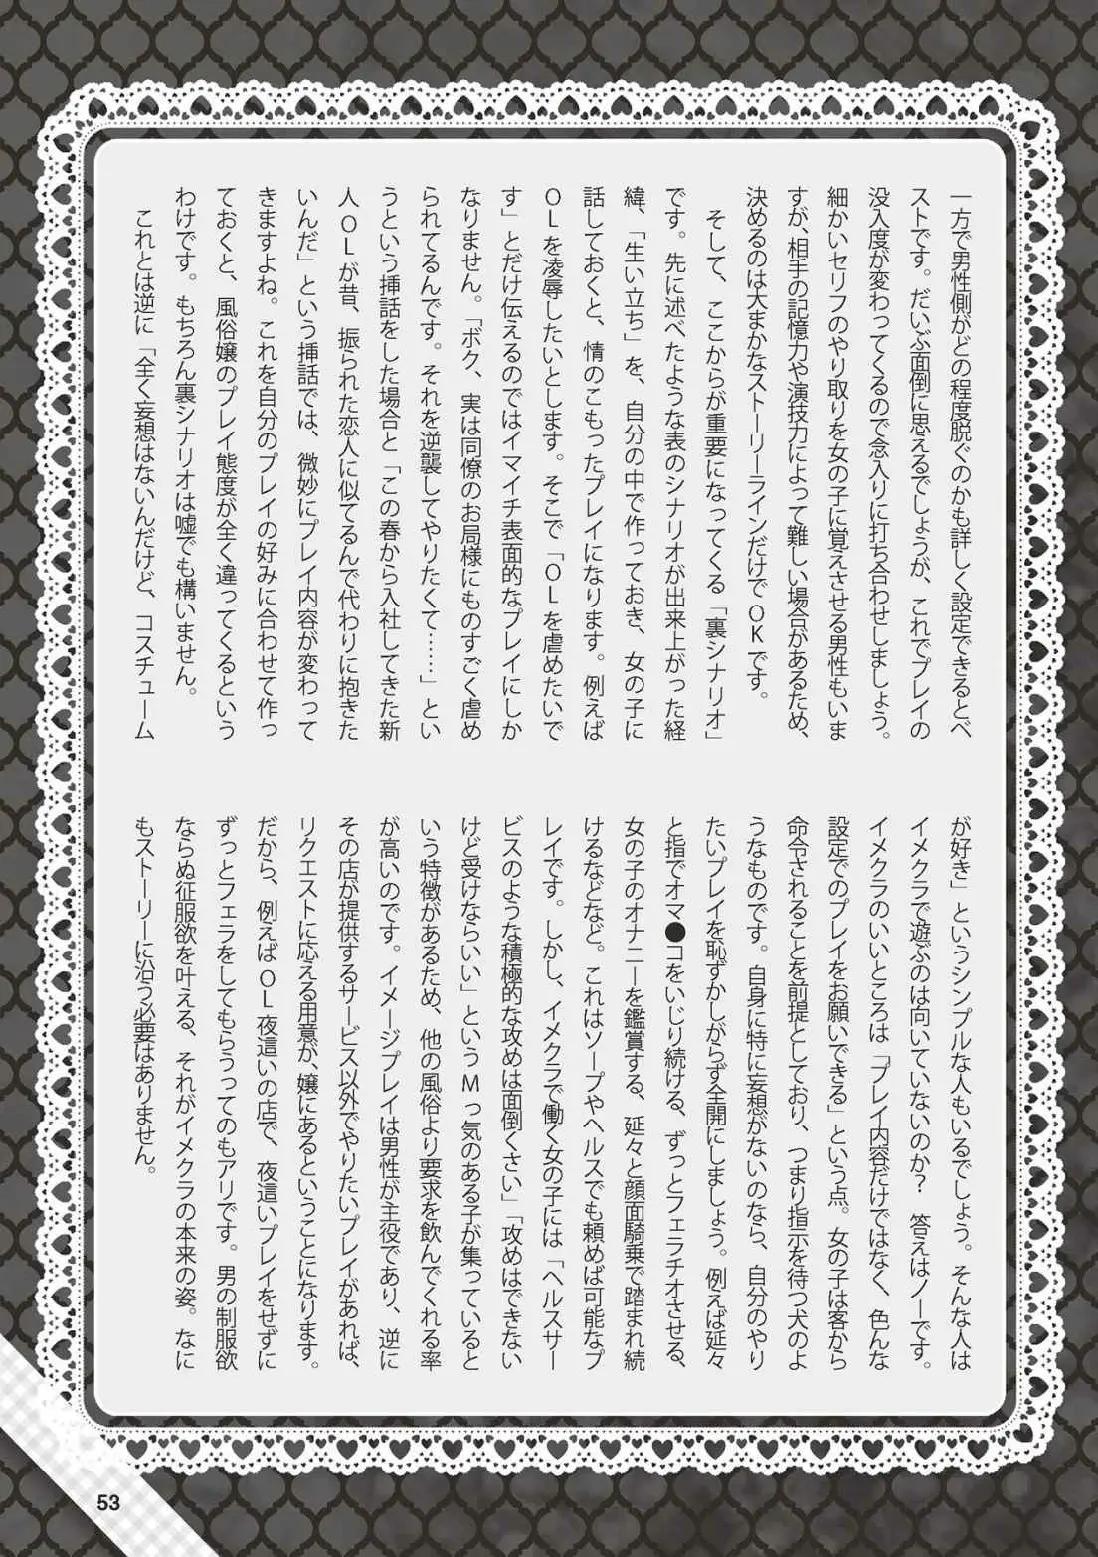 一方で男性側がどの程度脱ぐのかも詳しく設定できるとベ
ストです。だいぶ面倒に思えるでしょうが、これでプレイの
没入度が変わってくるので念入りに打ち合わせしましょう。
細かいセリフのやり取りを女の子に覚えさせる男性もいま
すが、相手の記憶力や演技力によって難しい場合があるため、
決めるのは大まかなストーリーラインだけでOKです。
そして、ここからが重要になってくる「裏シナリオ」
です。先に述べたような表のシナリオが出来上がった経
緯、「生い立ち」を、自分の中で作っておき、女の子に
話しておくと、情のこもったプレイになります。例えば
OLを凌辱したいとします。そこで「OLを虐めたいで
す」とだけ伝えるのではイマイチ表面的なプレイにしか
なりません。「ボク、実は同僚のお局様にものすごく虐め
られてるんです。それを逆襲してやりたくて……」とい
うという挿話をした場合と「この春から入社してきた新
人OLが昔、振られた恋人に似てるんで代わりに抱きた
いんだ」という挿話では、微妙にプレイ内容が変わって
きますよね。これを自分のプレイの好みに合わせて作っ
ておくと、風俗嬢のプレイ態度が全く違ってくるという
わけです。もちろん裏シナリオは嘘でも構いません。
これとは逆に「全く妄想はないんだけど、コスチューム
が好き」というシンプルな人もいるでしょう。そんな人は
イメクラで遊ぶのは向いていないのか? 答えはノーです。
イメクラのいいところは「プレイ内容だけではなく、色んな
設定でのプレイをお願いできる」という点。女の子は客から
命令されることを前提としており、つまり指示を待つ犬のよ
うなものです。自身に特に妄想がないのなら、自分のやり
たいプレイを恥ずかしがらず全開にしましょう。例えば延々
と指でオマ●コをいじり続ける、ずっとフェラチオさせる、
女の子のオナニーを鑑賞する、延々と顔面騎乗で踏まれ続
けるなどなど。これはソープやヘルスでも頼めば可能なプ
レイです。しかし、イメクラで働く女の子には「ヘルスサー
ビスのような積極的な攻めは面倒くさい」「攻めはできない
けど受けならいい」というMっ気のある子が集っていると
いう特徴があるため、他の風俗より要求を飲んでくれる率
が高いのです。イメージプレイは男性が主役であり、逆に
その店が提供するサービス以外でやりたいプレイがあれば、
リクエストに応える用意が、嬢にあるということになります。
だから、例えばOL夜這いの店で、夜這いプレイをせずに
ずっとフェラをしてもらうってのもアリです。男の制服欲
ならぬ征服欲を叶える、それがイメクラの本来の姿。なに
もストーリーに沿う必要はありません。
53